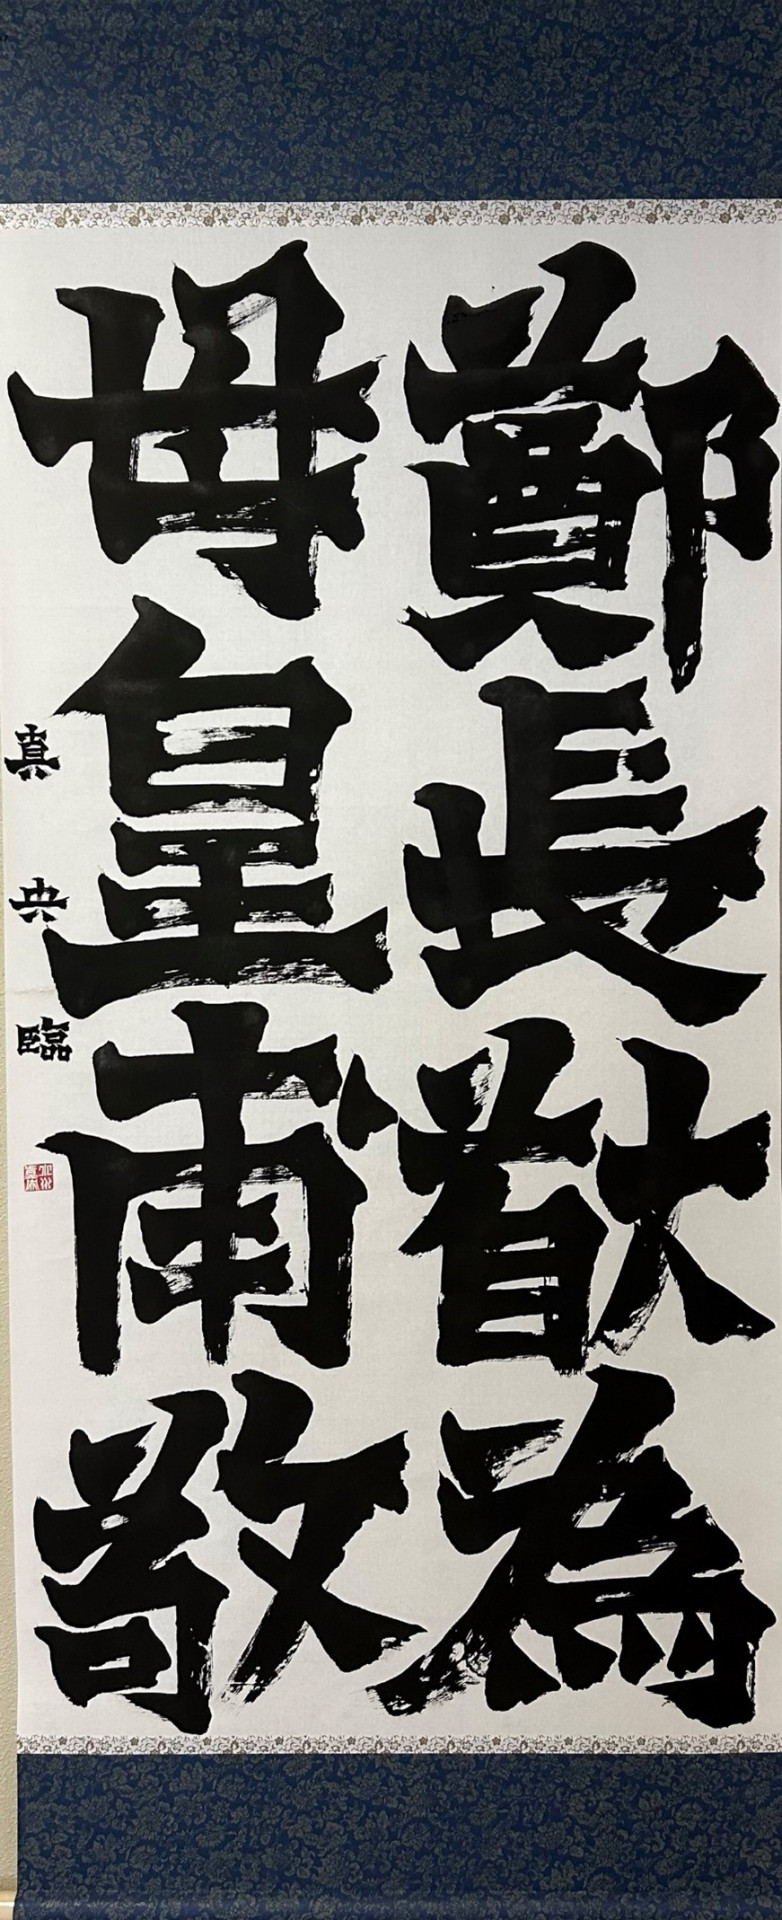 鄭長猷為
母皇甫敬
真央臨